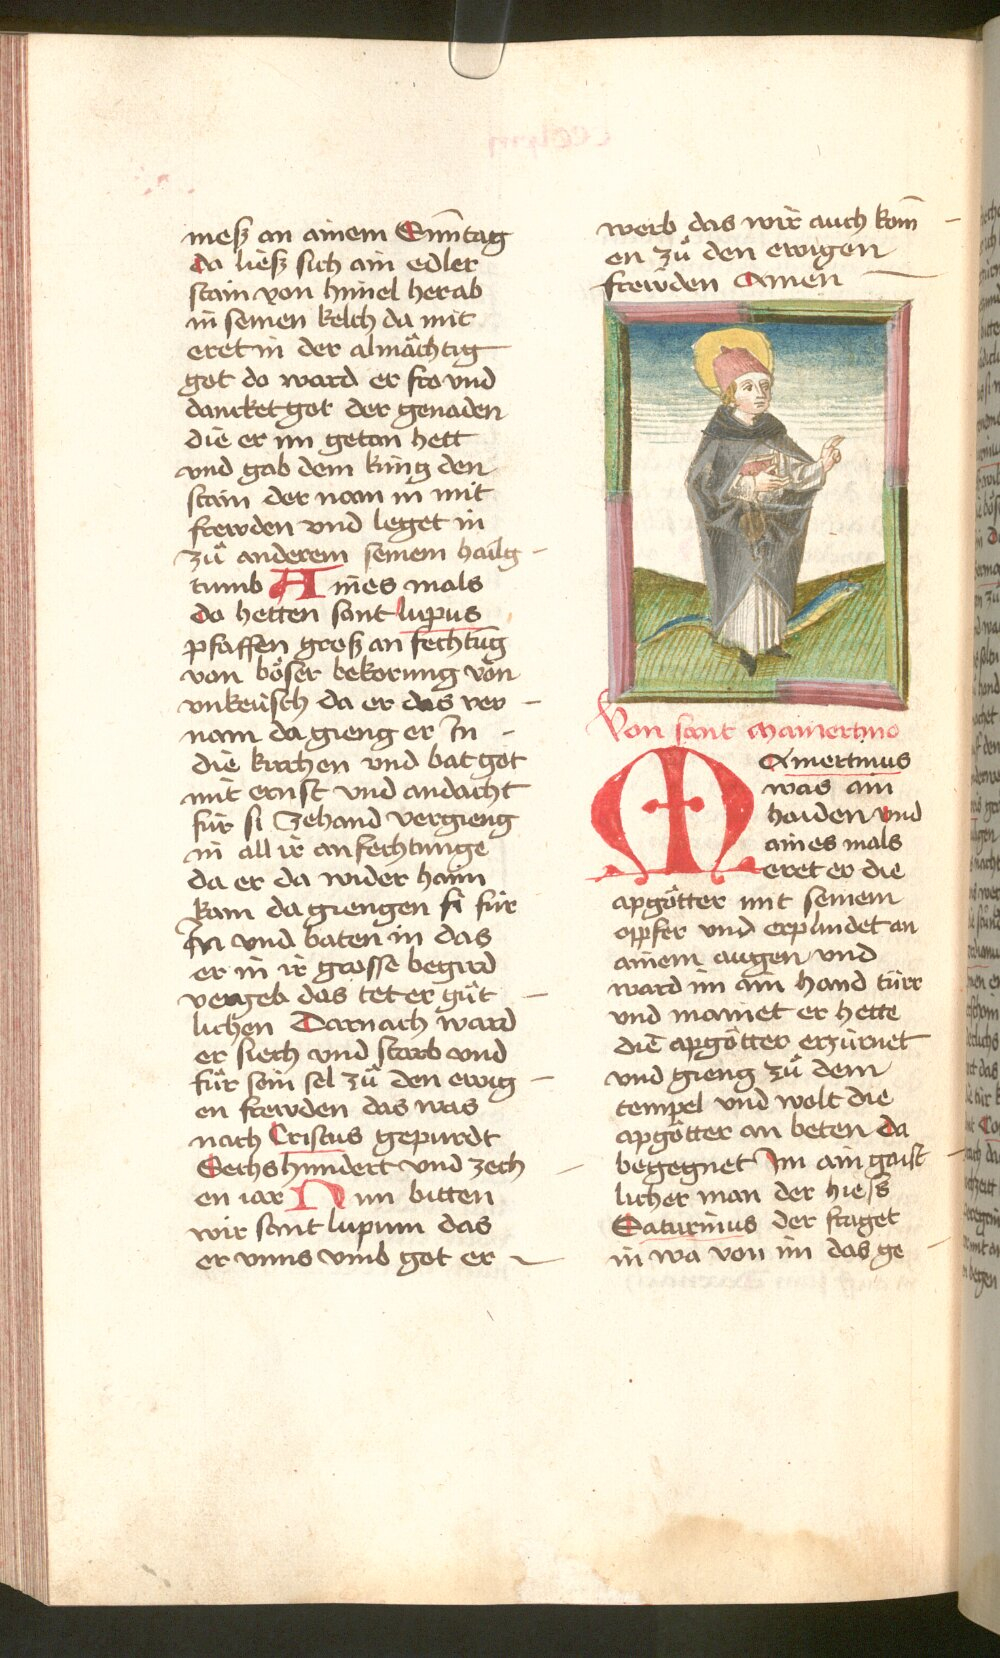 mesß an ainem Sūntag
da liesß sich ain edler
stain von himel herab
in seinen kelch da mit
eret in der almächtig
got do ward er fro vnd
dancket got der genaden
die er im getan hett
vnd gab dem king den
stain der nam in mit
frewden vnd leget in
zů anderem seinem hailg
tumb Aines mals
do hetten sant lupus
pfaffen groß an fechtūg
von böser bekorung von
vnkeüsch da er das ver
nam da gieng er In
die kirchen vnd bat got
mit ernst vnd andacht
für si Zehand vergieng
in all ir anfechtunge
da er da wider haim
kam da giengen si für
In vnd baten in das
er in ir grosse begird
vergeb das tet er gůt
lichen Darnach ward
er siech vnd starb vnd
für sein sel zů den ewig
en frewden das was
nach Cristus gepurdt
Sechshundert vnd zech
en iar Nun bitten
wir sant lupum das
er vnns vmb got er
werb das wir auch kom̄
en zů den ewigen
frewden Amen
Von sant Mamertino
MAmertinus
was ain
haiden vnd
aines mals
eret er die
apgötter mit seinem
opfer vnd erplindet an
ainem augen vnd
ward im ain hand türr
vnd mainet er hette
die apgötter erzürnet
vnd gieng zů dem
tempel vnd wolt die
apgötter an beten da
begegnet Im ain gaist
licher man der hiesß
Saturinus der fraget
in wa von im das ge